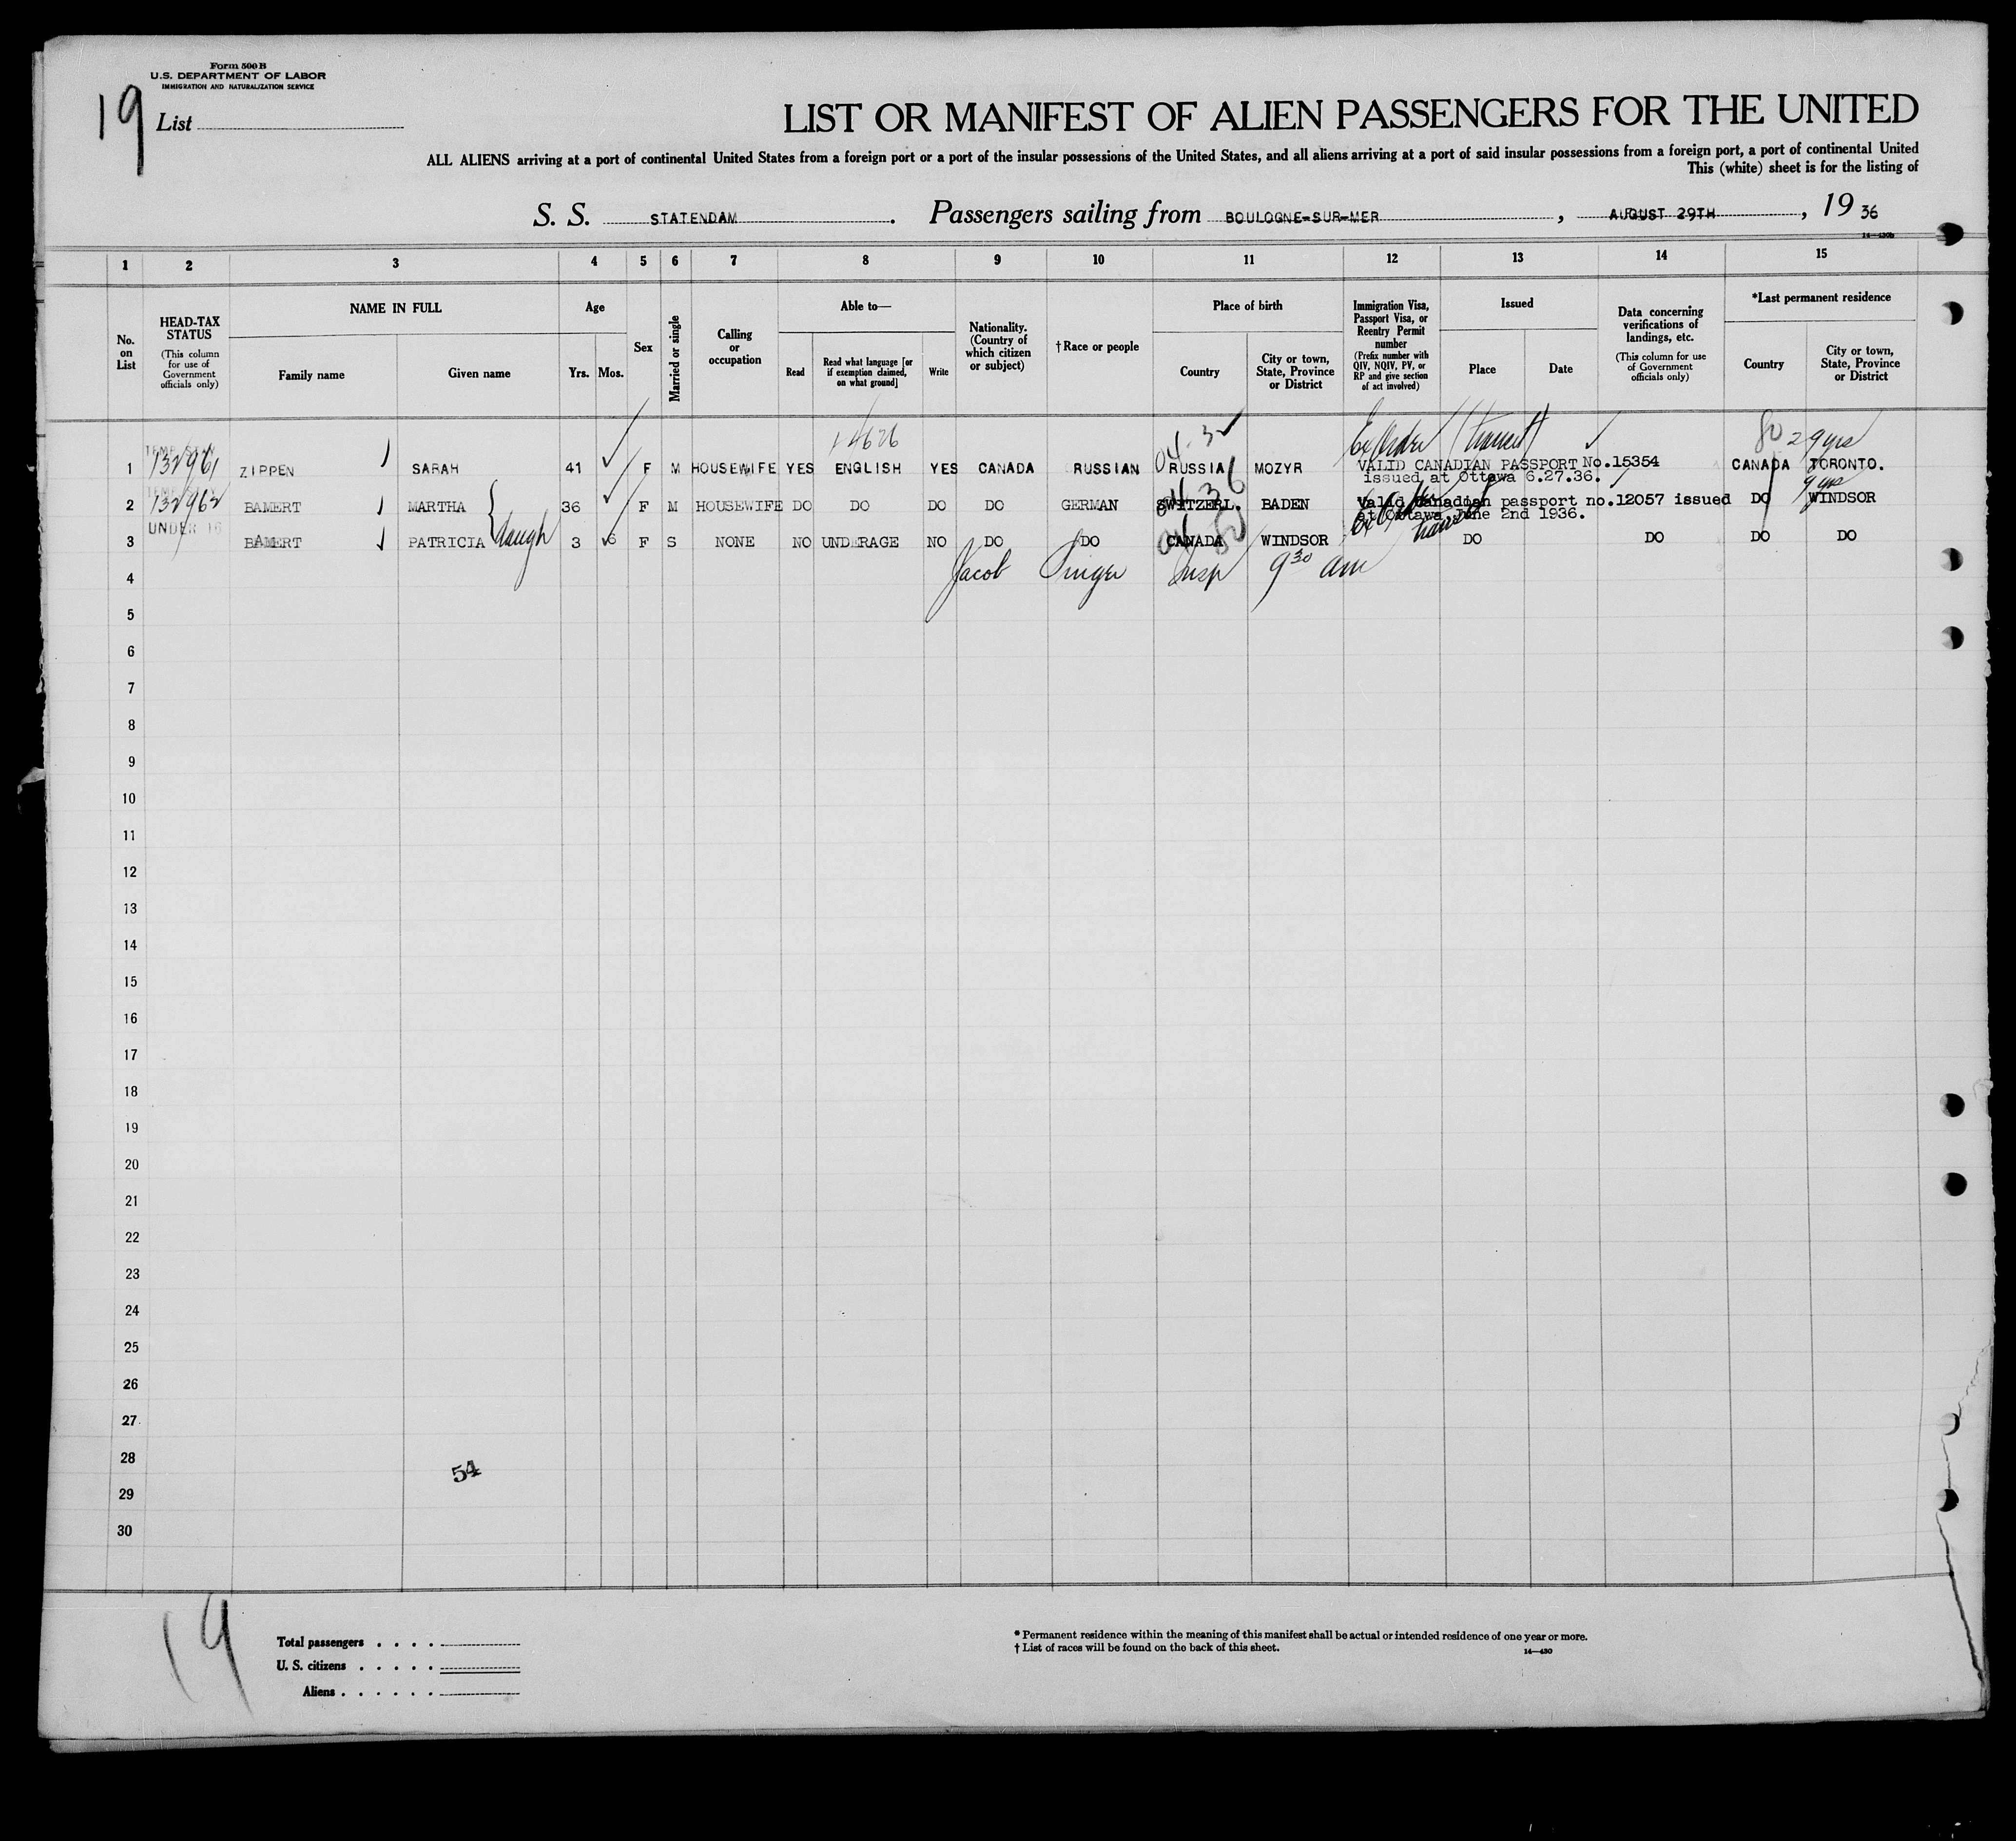 Form 500 B
U.S. DEPARTMENT OF LABOR
IMMIGRATION AND NATURALIZATION SERVICE
19
List
LIST OR MANIFEST OF ALIEN PASSENGERS FOR THE UNITED
ALL ALIENS arriving at a port of continental United States from a foreign port or a port of the insular possessions of the United States, and all aliens arriving at a port of said insular possessions from a foreign port, a port of continental United
This (white) sheet is for the listing of
S. S. STATENDAM. Passengers sailing from BOULOGNE-SUR-MER, AUGUST 29TH, 19 36
14—430b
1 2 3 4 5 6 7 8 9 10 11 12 13 14 15
No. on List
HEAD-TAX STATUS
(This column for use of Government officials only)
NAME IN FULL
Family name
Given name
Age
Yrs. Mos.
Sex
Married or single
Calling or occupation
Able to—
Read
Read what language [or if exemption claimed, on what ground]
Write
Nationality. (Country of which citizen or subject)
†Race or people
Place of birth
Country
City or town, State, Province or District
Immigration Visa, Passport Visa, or Reentry Permit number
(Prefix number with QIV, NQIV, PV, or RP and give section of act involved)
Issued
Place
Date
Data concerning verifications of landings, etc.
(This column for use of Government officials only)
*Last permanent residence
Country
City or town, State, Province or District
TEMP STAY 14626 Ex Order (transit) 80 29 yrs
1 132961 ZIPPEN SARAH 41 F M HOUSEWIFE YES ENGLISH YES CANADA RUSSIAN RUSSIA MOZYR VALID CANADIAN PASSPORT No.15354 CANADA TORONTO.
issued at Ottawa 6.27.36.
TEMP STAY 9 yrs
2 132962 BAMERT MARTHA 36 F M HOUSEWIFE DO DO DO DO GERMAN SWITZERL. BADEN Valid Canadian passport no.12057 issued DO WINDSOR
at Ottawa June 2nd 1936.
UNDER 16 daugh transit
3 BAMERT PATRICIA 3 6 F S NONE NO UNDERAGE NO DO DO CANADA WINDSOR DO DO DO DO
4 Jacob Singer Insp 9 30 am
5
6
7
8
9
10
11
12
13
14
15
16
17
18
19
20
21
22
23
24
25
26
27
28
54
29
30
19
Total passengers
U. S. citizens
Aliens
* Permanent residence within the meaning of this manifest shall be actual or intended residence of one year or more.
† List of races will be found on the back of this sheet.
14—430